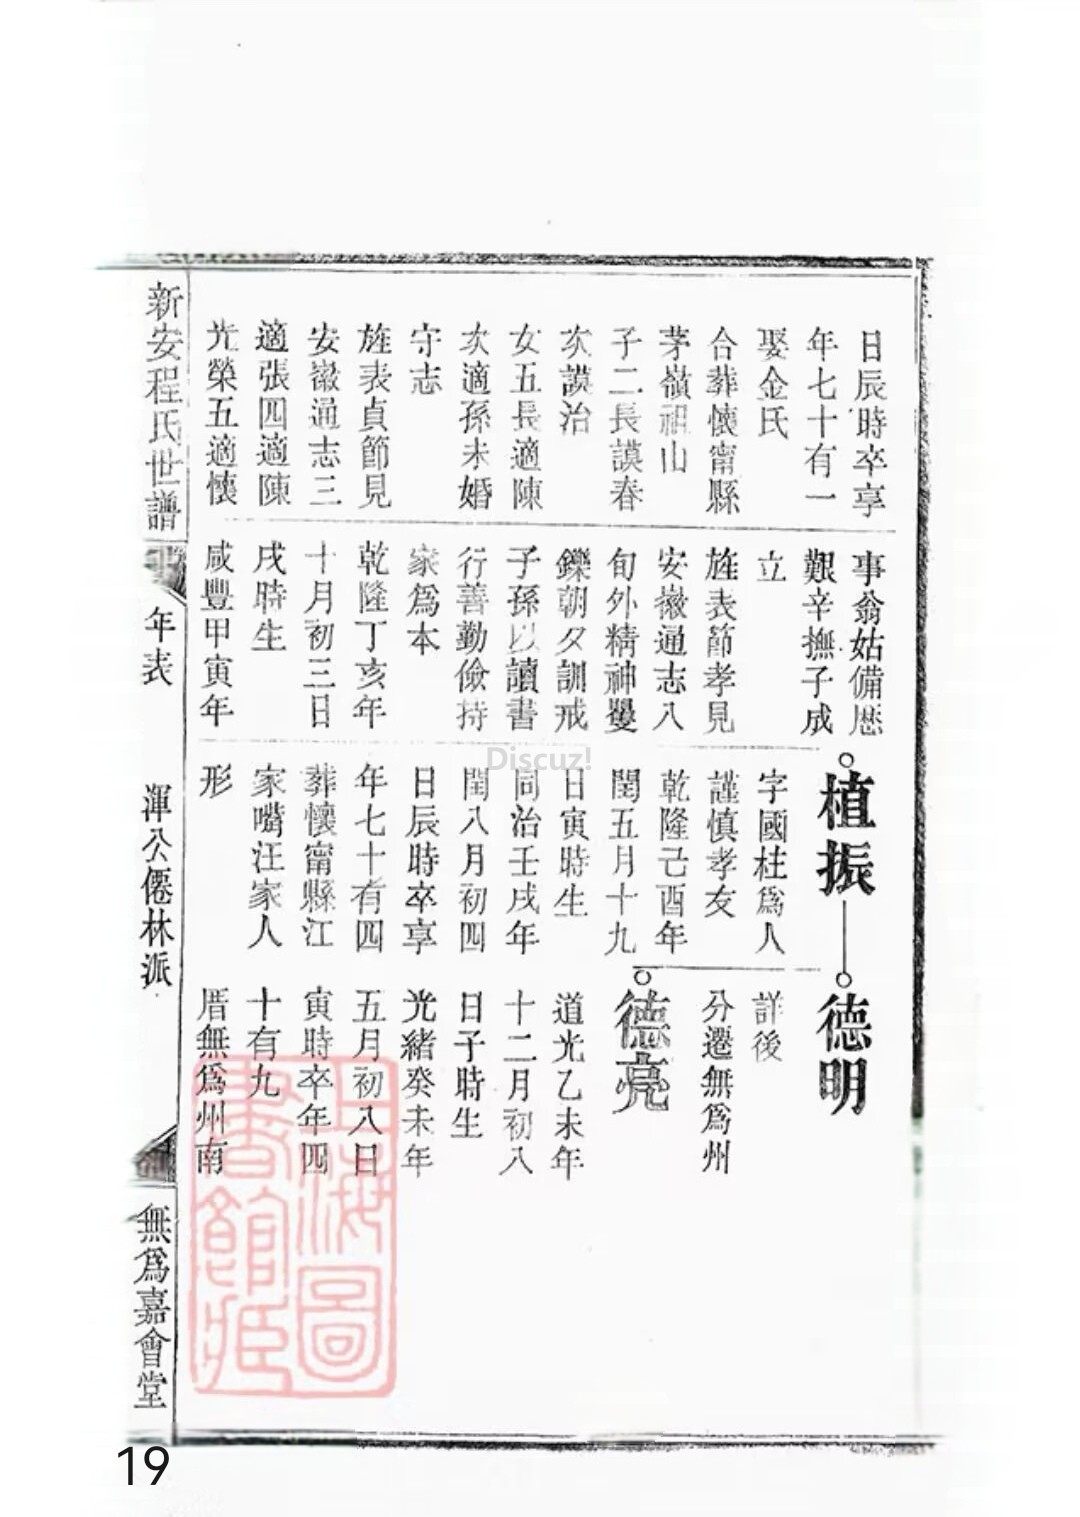 日辰時卒享
年七十有一
娶金氏
合葬懷甯縣
茅嶺祖山
子二長謨春
次謨治
女五長適陳
次適孫未婚
守志
旌表貞節見
安徽通志三
適張四適陳
光榮五適懷
事翁姑備歷
艱辛撫子成
立
旌表節孝見
安徽通志八
旬外精神矍
鑠朝夕訓戒
子孫以讀書
行善勤儉持
家爲本
乾隆丁亥年
十月初三日
戌時生
咸豐甲寅年
植振
字國柱爲人
謹慎孝友
乾隆己酉年
閏五月十九
日寅時生
同治壬戌年
閏八月初四
日辰時卒享
年七十有四
葬懷甯縣江
家嘴汪家人
形
德明
詳後
分遷無爲州
德亮
道光乙未年
十二月初八
日子時生
光緒癸未年
五月初八日
寅時卒年四
十有九
厝無爲州南
新安程氏世譜
年表
渾公僊林派
無爲嘉會堂
上海圖
書館藏
Discuz!
19